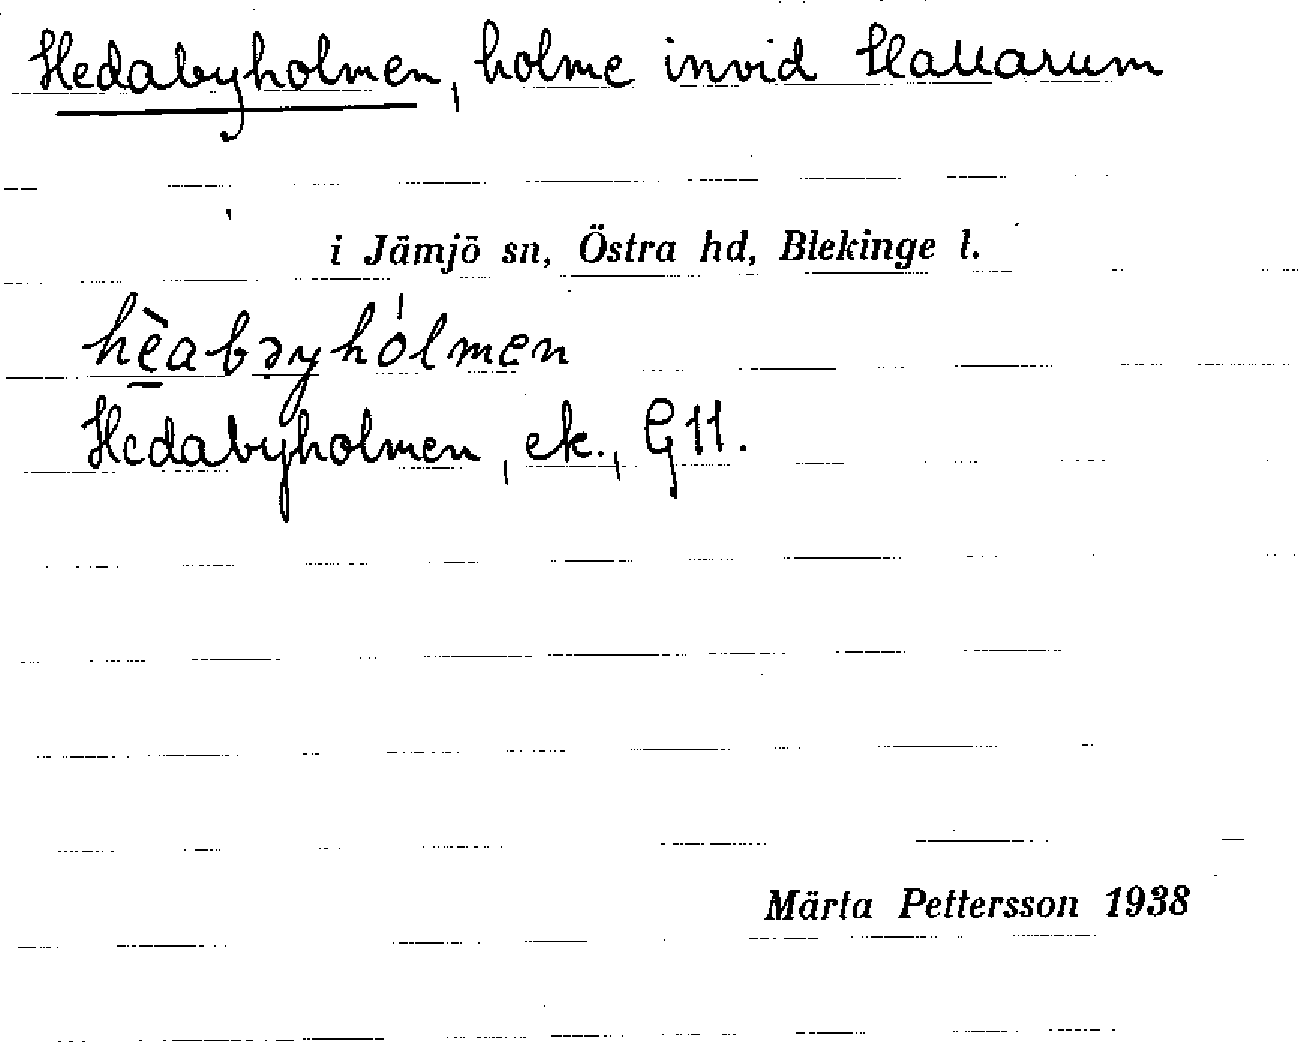 Hedabyholmen, holme invid Hallarum
i Jämjö sn, Östra hd, Blekinge l.
hèabəyhólmen
Hedabyholmen, ek., G11.
Märta Pettersson 1938